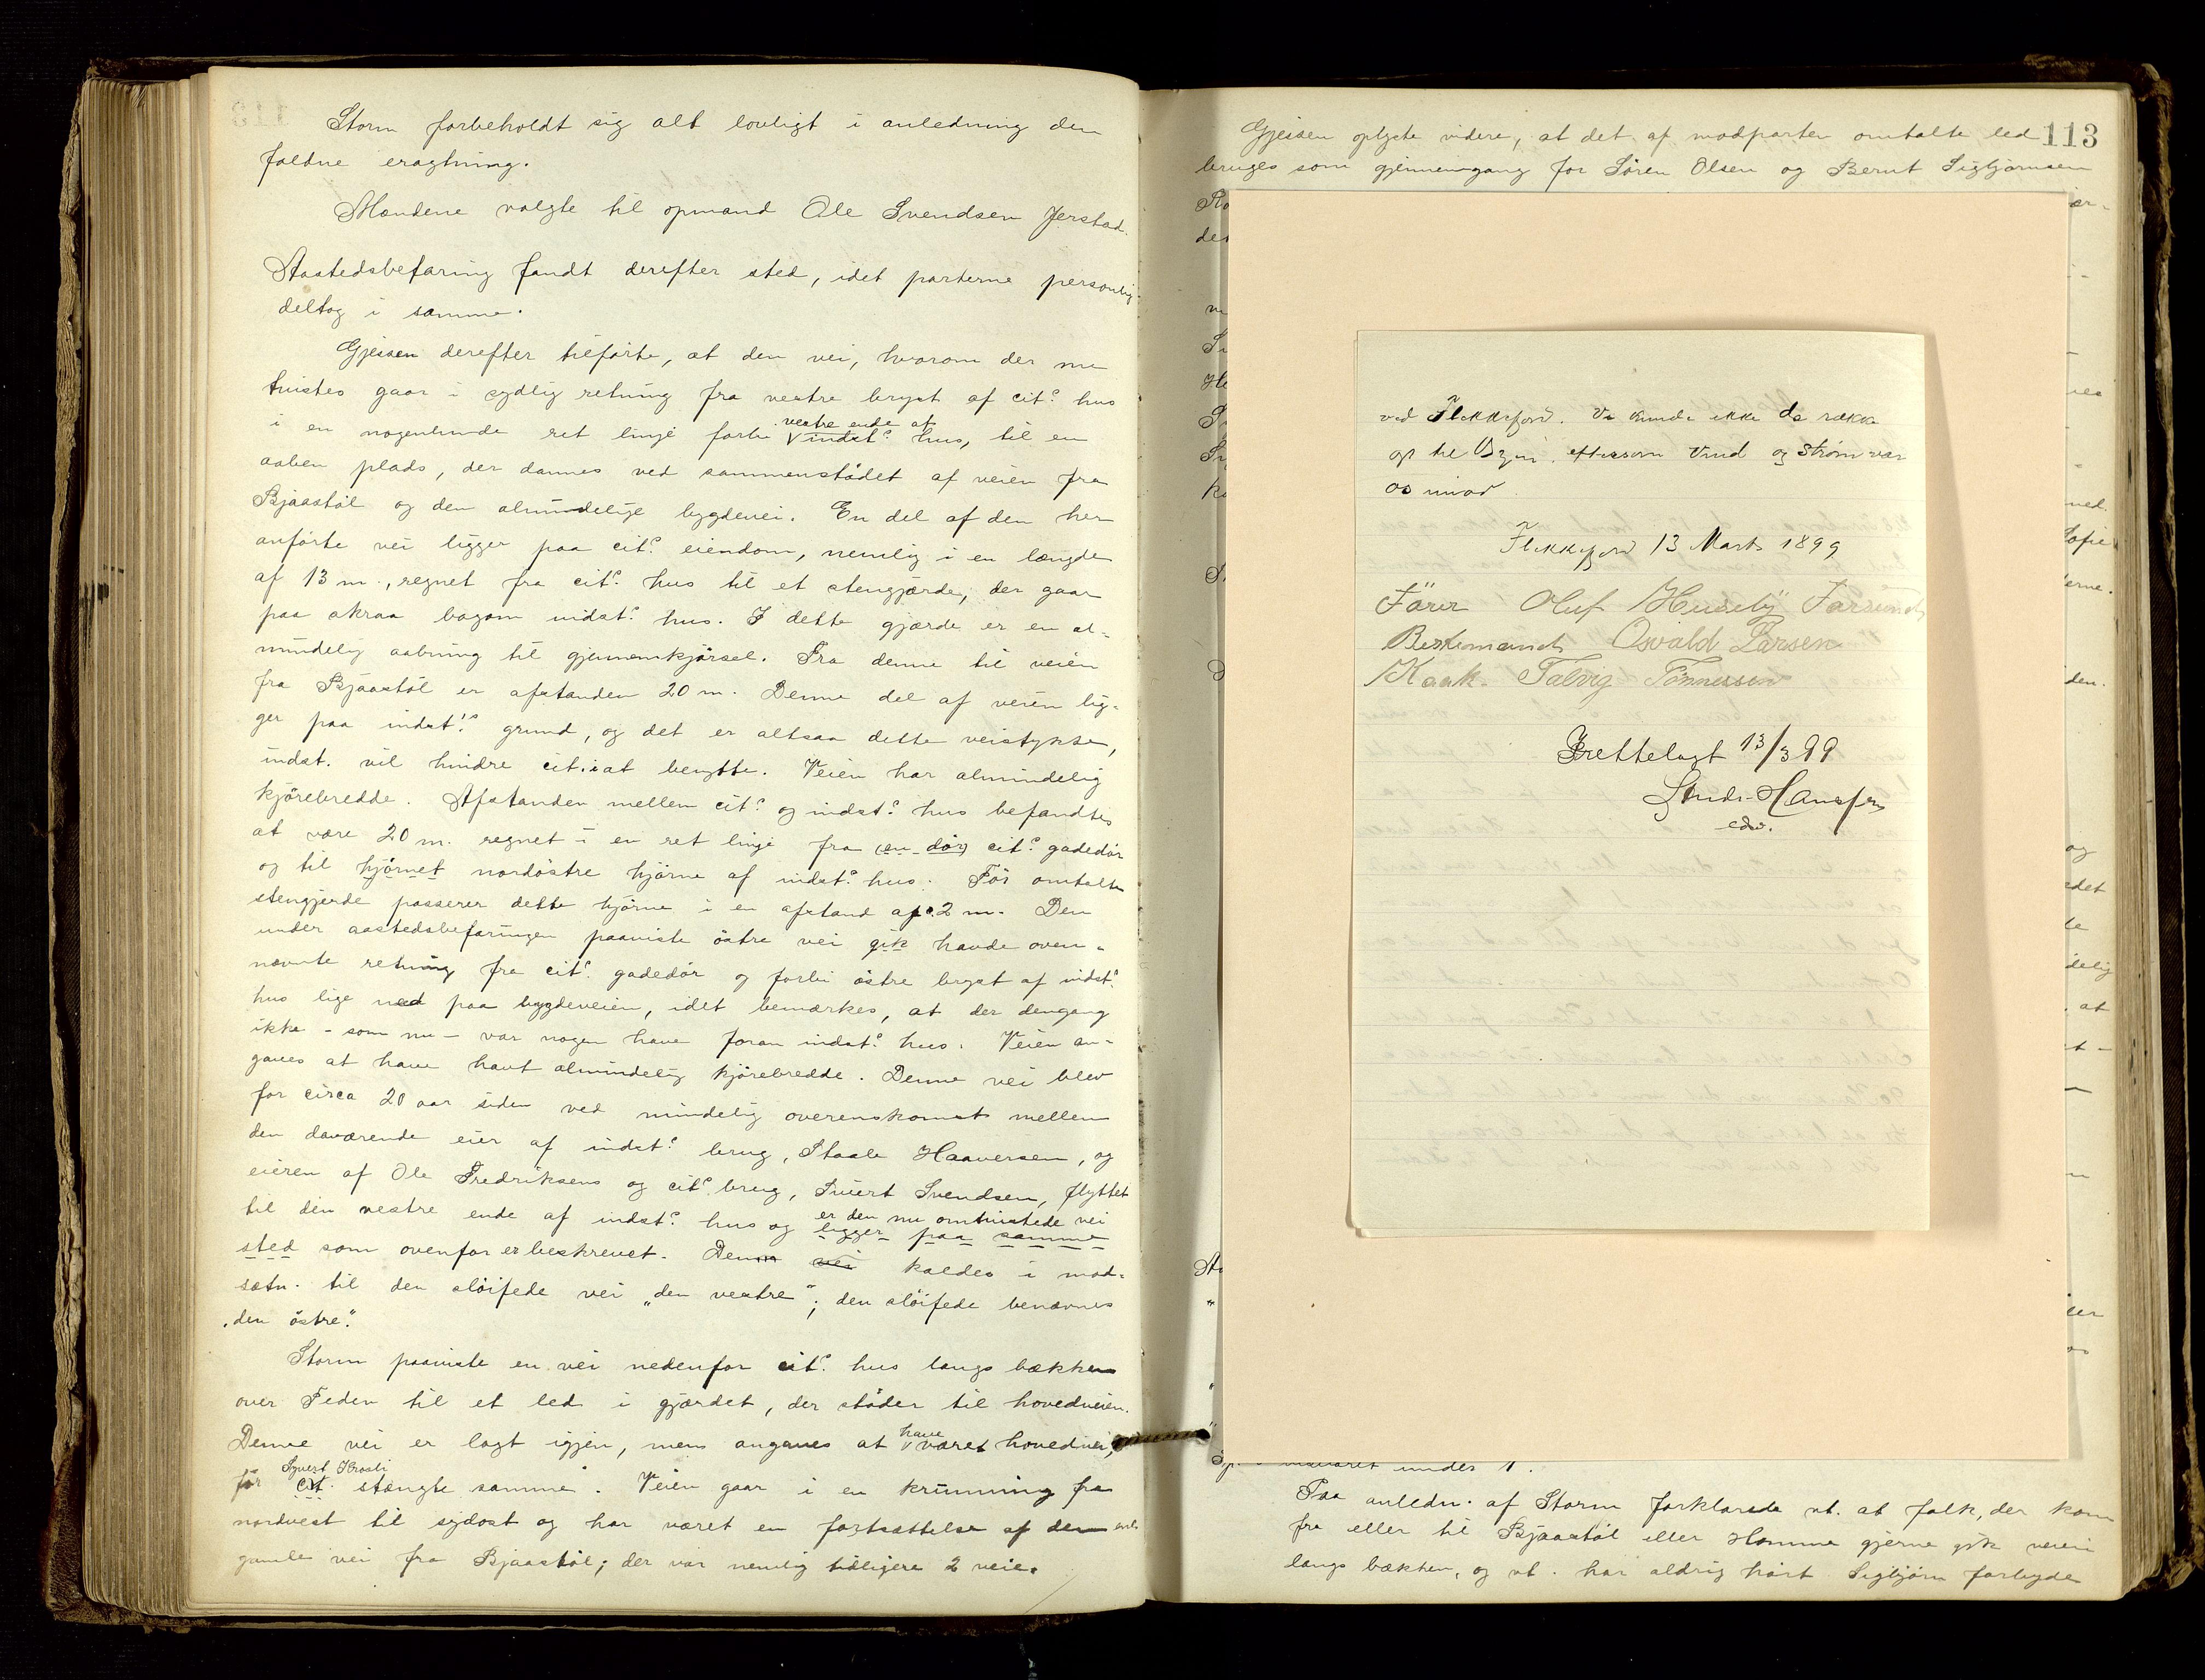 Storm forbeholdt sig alt lovligt i anledning den
faldne eragtning.
Mændene valgte til opmand Ole Svendsen Jerstad.
Aastedsbefaring fandt derefter sted, idet parterne personlig
deltog i samme.
Gjessen derefter tilførte, at den vei, hvorom der nu
tvistes gaar i sydlig retning fra vestre bryst af cit.s hus
i en nogenlunde ret linje forbi vestre ende af indst.s hus, til en
aaben plads, der dannes ved sammenstødet af veien fra
Bjaastøl og den almindelige bygdevei. En del af den her
anførte vei ligger paa cit.s eiendom, nemlig i en længde
af 13 m., regnet fra cit.s hus til et stengjærde, der gaar
paa skraa bagom indst.s hus. I dette gjærde er en al-
mindelig aabning til gjennemkjørsel. Fra denne til veien
fra Bjaastøl er afstanden 20 m. Denne del af veien lig-
ger paa indst.s grund, og det er altsaa dette veistykke,
indst. vil hindre cit. i at benytte. Veien har almindelig
kjørebredde. Afstanden mellem cit.s og indst.s hus befandtes
at være 20 m. regnet i en ret linje fra (en dør) cit.s gadedør
og til hjørnet nordøstre hjørne af indst.s hus. Før omtalte
stengjerde passerer dette hjørne i en afstand af c. 2 m. Den
under aastedsbefaringen paaviste østre vei gik havde oven-
nævnte retning fra cit.s gadedør og forbi østre bryst af indst.s
hus lige ned paa bygdeveien, idet bemærkes, at der dengang
ikke - som nu - var nogen have foran indst.s hus. Veien an-
gaves at have havt almindelig kjørebredde. Denne vei blev
for circa 20 aar siden ved mindelig overenskomst mellem
den daværende eier af indst.s brug, Staale Haaversen, og
eieren af Ole Fredriksens og cit.s brug, Sivert Svendsen, flyttet
til den vestre ende af indst.s hus og er den nu omtvistede vei
ligger paa samme
sted som ovenfor er beskrevet. Denne vei kaldes i mod-
sætn. til den sløifede vei „den vestre“; den sløifede benævnes
„den østre“.
Storm paaviste en vei nedenfor cit.s hus langs bækken
over Feden til et led i gjærdet, der støder til hovedveien.
Denne vei er lagt igjen, mens angaves at have været hovedvei,
før Syvert Krosli cit. stængte samme. Veien gaar i en krumning fra
nordvest til sydost og har været en fortsættelse af den
gamle vei fra Bjaastøl; der var nemlig tidligere 2 veie.
113
Gjessen oplyste videre, at det af modparten omtalte led
bruges som gjennemgang for Søren Olsen og Bernt Sigbjørnsen
ved Flekkefjord. Vi kunde ikke da række
op til Byen, eftersom Vind og Strøm var
os imod
Flekkefjord 13 Marts 1899
Förer Oluf Huseby Farsund
Bestemand Osvald Larsen
Kok Talvig Tönnessen
Fretteelagt 13/3 99
edv.
Paa anledn. af Storm forklarede vt. at folk, der kom
fra eller til Bjaastøl eller Homme gjerne gik veien
langs bækken, og vt. har aldrig hørt Sigbjørn forbyde